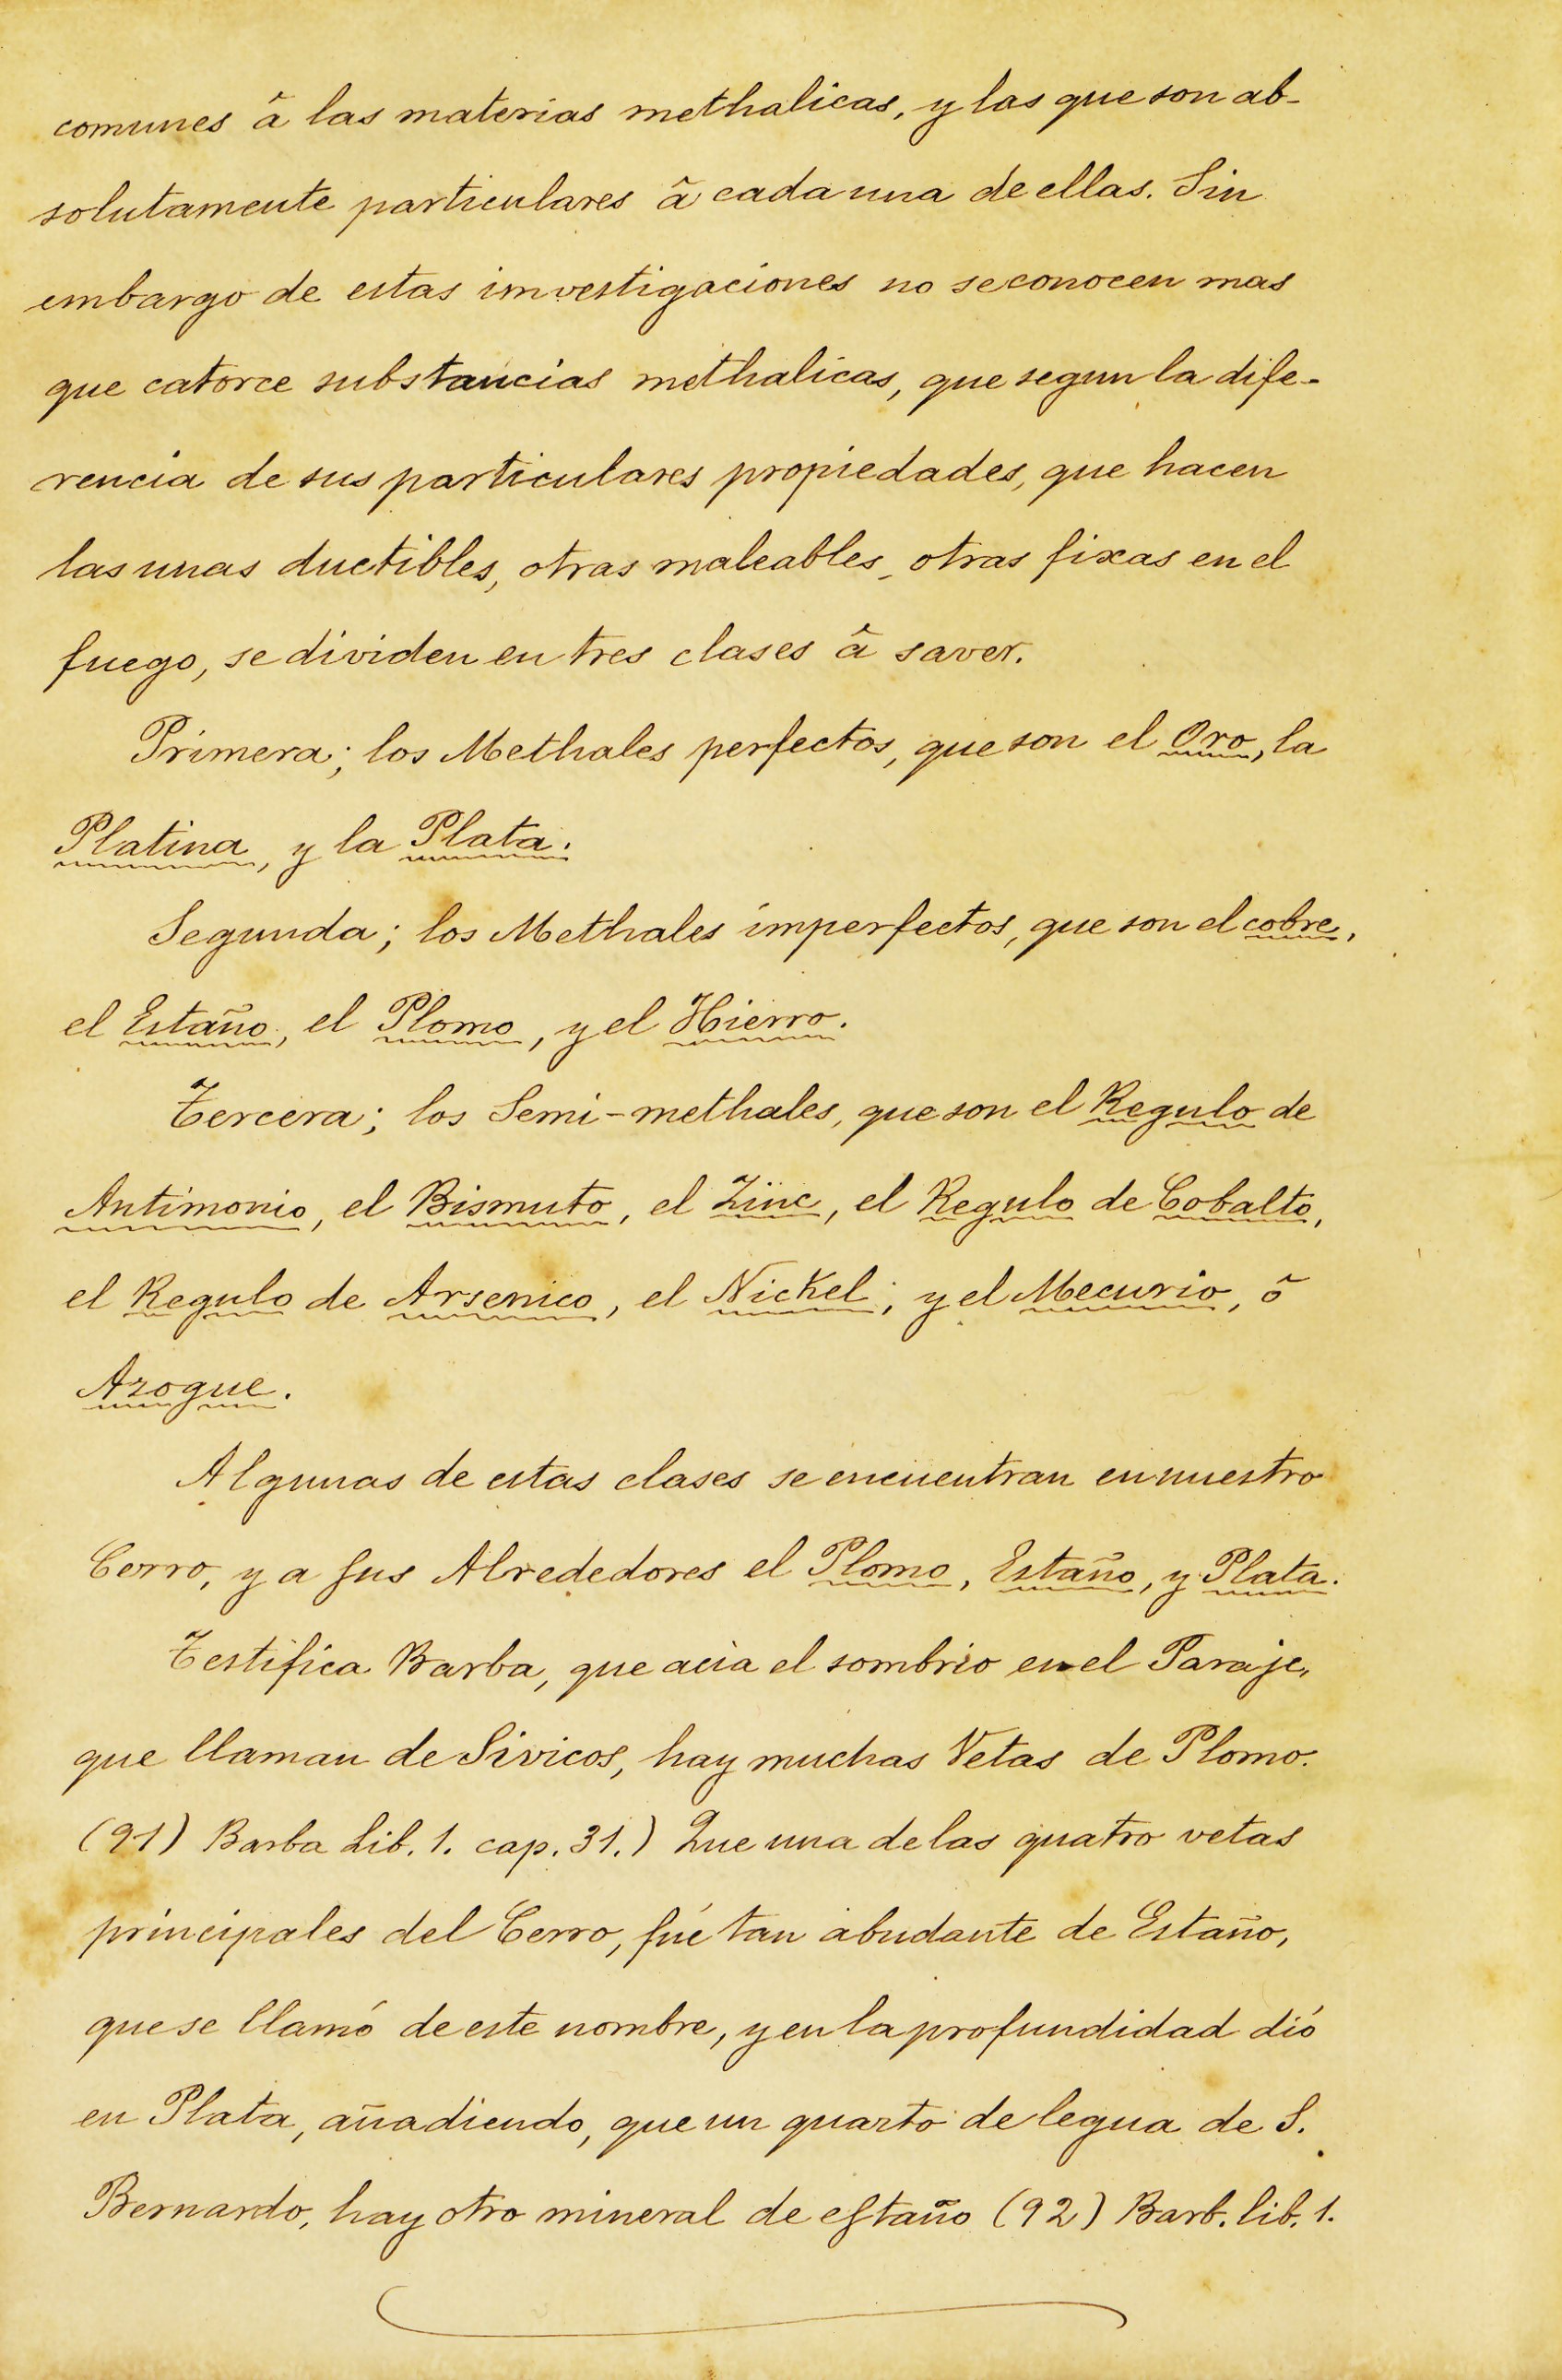 comunes â las materias methalicas, y las que son ab-
solutamente particulares â cada una de ellas. Sin
embargo de estas imvestigaciones no se conocen mas
que catorce substancias methalicas, que segun la dife-
rencia de sus particulares propiedades, que hacen
las unas ductibles, otras maleables, otras fixas en el
fuego, se dividen en tres clases â saver.
Primera; los Methales perfectos, que son el Oro, la
Platina, y la Plata.
Segunda; los Methales imperfectos, que son el cobre,
el Estaño, el Plomo, y el Hierro.
Tercera; los Semi-methales, que son el Regulo de
Antimonio, el Bismuto, el Zinc, el Regulo de Cobalto,
el Regulo de Arsenico, el Nickel; y el Mecurio, ô
Azogue.
Algunas de estas clases se encuentran en nuestro
Cerro, y a sus Alrededores el Plomo, Estaño, y Plata.
Testifica Barba, que acia el sombrio en el Paraje,
que llaman de Sivicos, hay muchas Vetas de Plomo.
(91) Barba Lib. 1. cap. 31.) Que una de las quatro vetas
principales del Cerro, fué tan abudante de Estaño,
que se llamó de este nombre, y en la profundidad dió
en Plata, añadiendo, que un quarto de legua de S.
Bernardo, hay otro mineral de estaño (92) Barb. lib. 1.